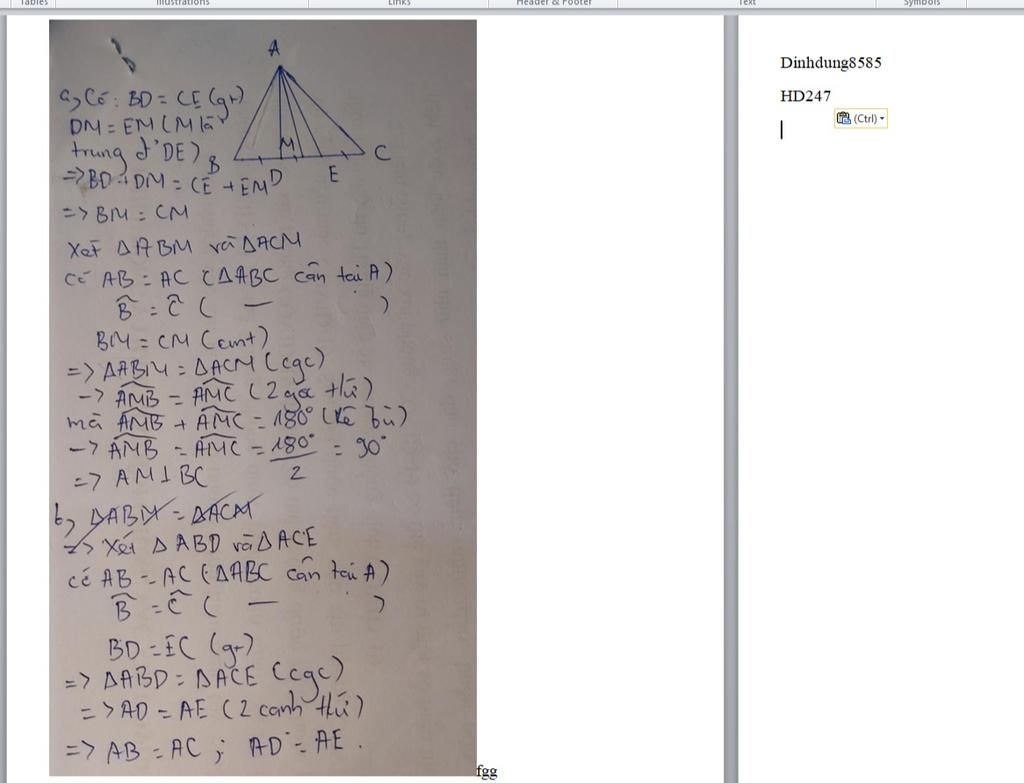 Tables
Illustrations
Links
Header & Footer
Text
Symbols
A
a, Có: BD = CE (gt)
DM = EM (M là
trung đ' DE) B M D E C
=> BD + DM = CE + EM
=> BM = CM
Xét ΔABM và ΔACM
có AB = AC (ΔABC cân tại A)
B̂ = Ĉ ( — )
BM = CM (cmt)
=> ΔABM = ΔACM (cgc)
-> AMB̂ = AMĈ (2 góc tứ)
mà AMB̂ + AMĈ = 180° (kề bù)
-> AMB̂ = AMĈ = 180°/2 = 90°
=> AM ⊥ BC
b, ΔABM = ΔACM
=> Xét ΔABD và ΔACE
có AB = AC (ΔABC cân tại A)
B̂ = Ĉ ( — )
BD = EC (gt)
=> ΔABD = ΔACE (cgc)
=> AD = AE (2 cạnh tứ)
=> AB = AC ; AD = AE .
fgg
Dinhdung8585
HD247
(Ctrl)